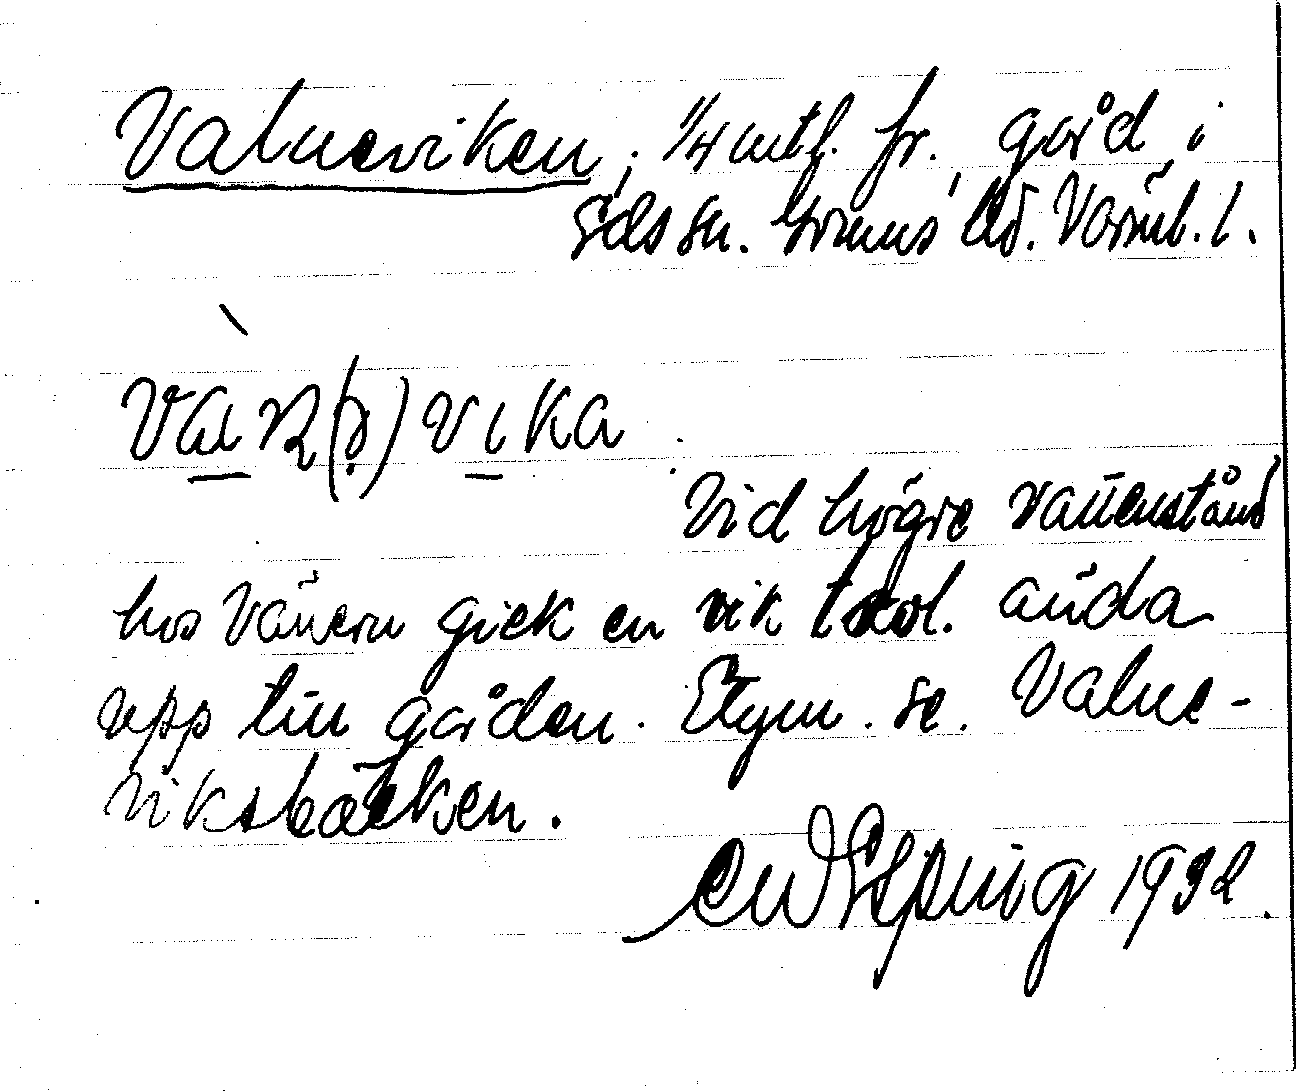 Valneviken, 1/4 mtl. fr. gård i
Eds sn. Grums hd. Värml. l.
vika
Vid högre vattenstånd
hos Vänern gick en vik t. o. l. ända
upp till gården. Etym. se Valne-
viksbäcken.
1932.